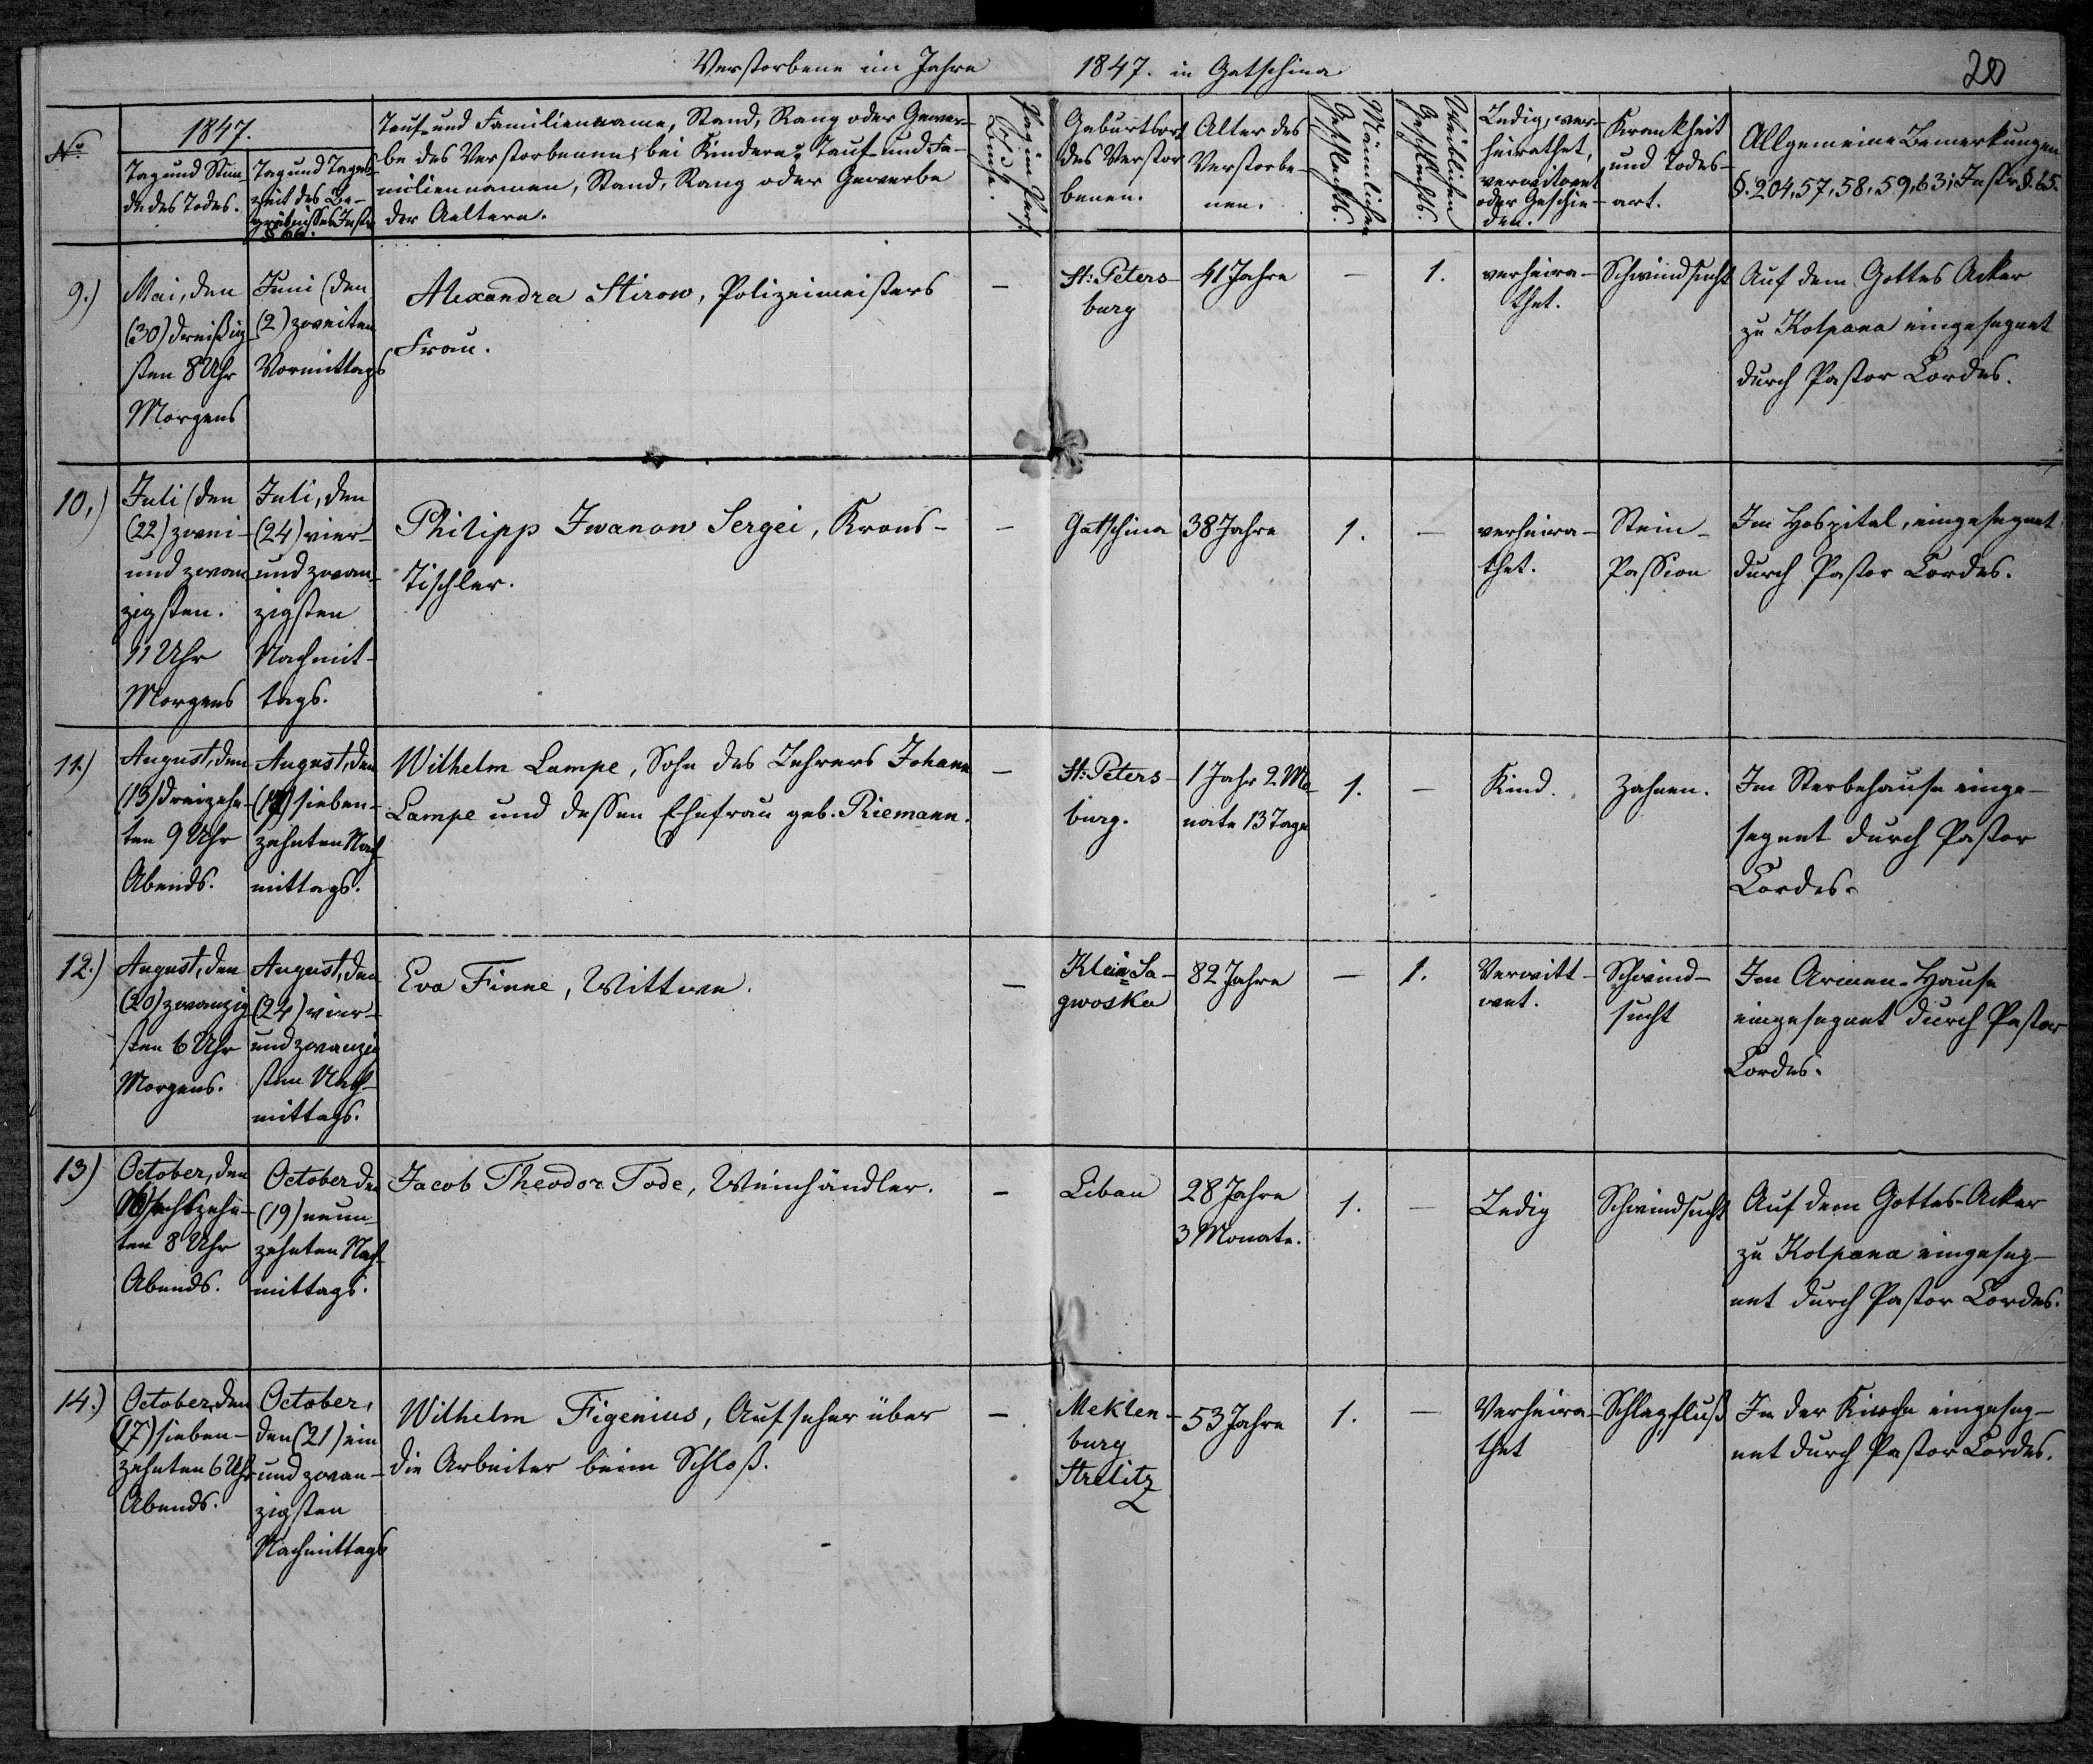 Verstorbene im Jahre 1847. in Gatschina
20
No.
1847.
Tag und Stun-
de des Todes.
Tag und Tages-
zeit des Be-
gräbnisses Instr.
§ 66.
Tauf- und Familienname, Stand, Rang oder Gewer-
be des Verstorbenen; bei Kindern: Tauf- und Fa-
miliennamen, Stand, Rang oder Gewerbe
der Aeltern.
Geburtsort
des Verstor
benen.
Alter des
Verstorbe-
nen.
Männlichen
Geschlechts.
Weiblichen
Geschlechts.
Ledig, ver-
heirathet,
verwitwet
oder Geschie-
den.
Krankheit
und Todes-
art.
Allgemeine Bemerkungen
§. 204, 57, 58, 59, 63; Instr. §. 65.
9.)
Mai, den
(30) dreißig-
sten 8 Uhr
Morgens
Juni (den
(2) zweiten
Vormittags
Alexandra Stirow, Polizeimeisters
Frau.
—
St: Peters-
burg
41 Jahre
—
1.
verheira-
thet.
Schwindsucht
Auf dem Gottes Acker
zu Kolpana eingesegnet
durch Pastor Cordes.
10.)
Juli (den
(22) zwei-
und zwan-
zigsten.
11 Uhr
Morgens
Juli, den
(24) vier-
und zwan-
zigsten
Nachmit-
tags.
Philipp Iwanow Sergei, Krons-
Tischler.
—
Gatschina
38 Jahre
1.
—
verheira-
thet.
Stein-
Passion
Im Hospital, eingesegnet
durch Pastor Cordes.
11.)
August, den
(13) dreizehn-
ten 9 Uhr
Abends.
August, den
(17) sieben-
zehnten Nach-
mittags.
Wilhelm Lampe, Sohn des Lehrers Johann
Lampe und dessen Ehefrau geb. Riemann.
—
St: Peters-
burg.
1 Jahr 2 Mo-
nate 13 Tage
1.
—
Kind.
Zahnen.
Im Sterbehause einge-
segnet durch Pastor
Cordes.
12.)
August, den
(20) zwanzig-
sten 6 Uhr
Morgens.
August, den
(24) vier-
und zwanzig
sten Nach-
mittags.
Eva Finne, Wittwe.
—
Klein-Sa-
gwoska
82 Jahre
—
1.
Verwitt-
wet.
Schwind-
sucht
Im Armen-Hause
eingesegnet durch Pastor
Cordes.
13)
October, den
(16) sechszehn-
ten 8 Uhr
Abends.
October den
(19) neun-
zehnten Nach-
mittags.
Jacob Theodor Tode, Weinhändler.
—
Libau
28 Jahre
3 Monate.
1.
—
Ledig
Schwindsucht
Auf dem Gottes-Acker
zu Kolpana eingeseg-
net durch Pastor Cordes.
14.)
October, den
(17) sieben-
zehnten 6 Uhr
Abends.
October,
den (21) ein
und zwan-
zigsten
Nachmittags
Wilhelm Figenius, Aufseher über
die Arbeiter beim Schloß.
—
Meklen-
burg
Strelitz
53 Jahre
1.
—
Verheira-
thet
Schlagfluß
In der Kirche eingeseg-
net durch Pastor Cordes.